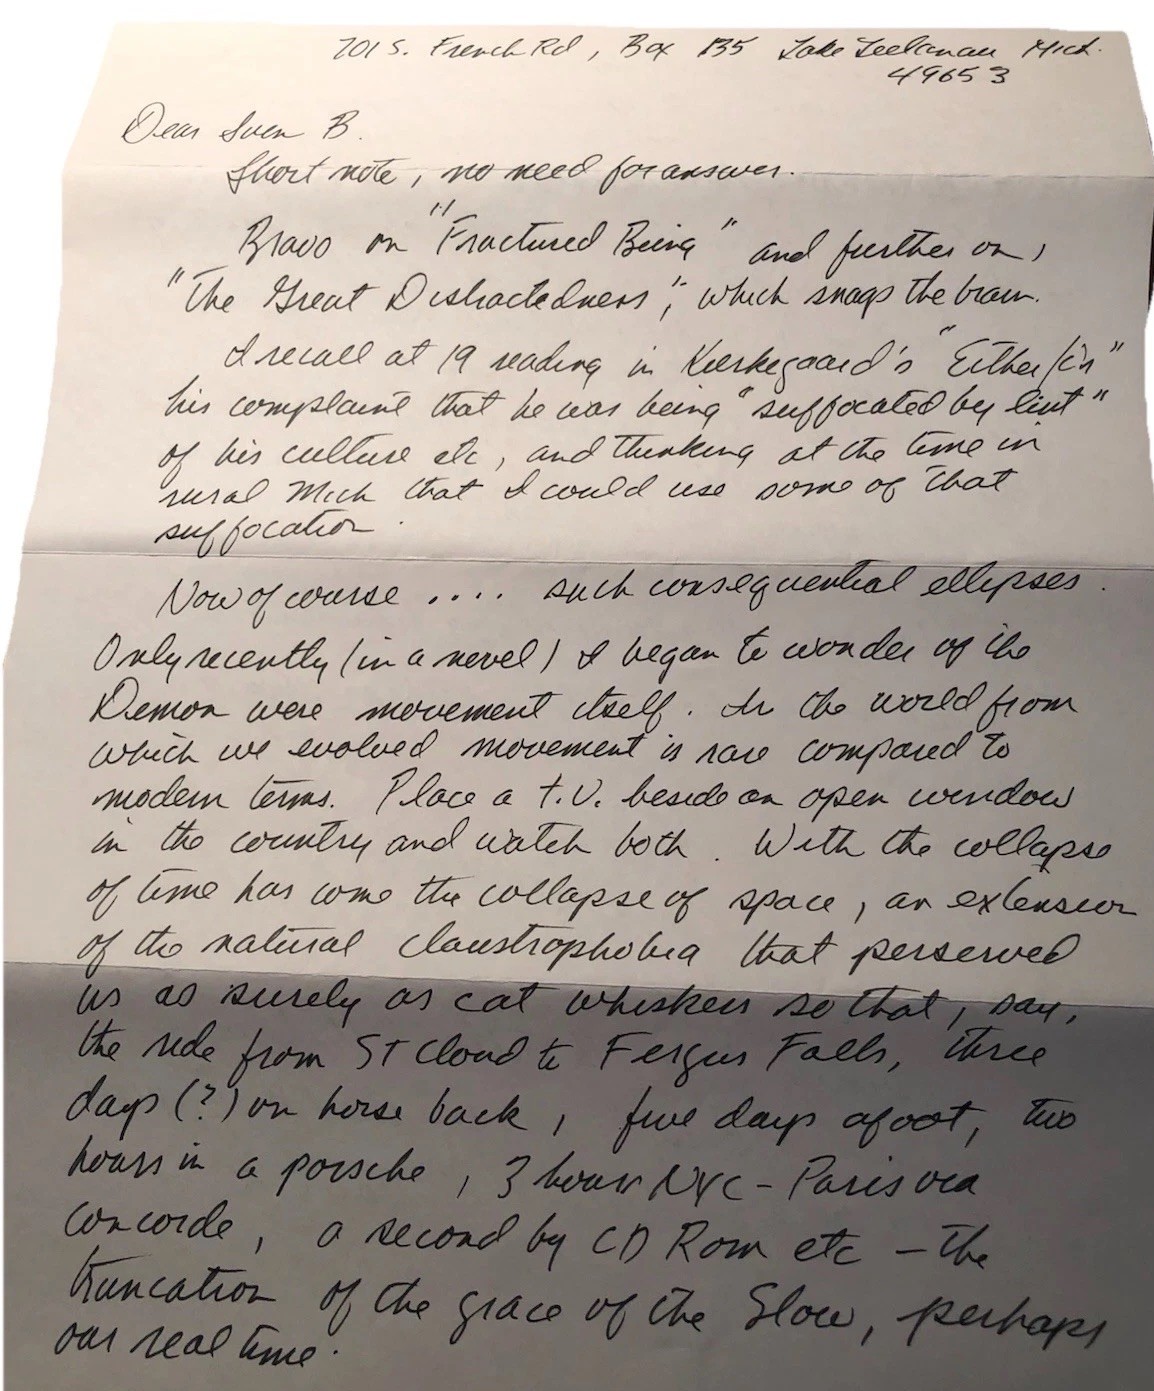 701 S. French Rd, Box 135 Lake Leelanau Mich.
49653
Dear Sven B.
Short note, no need for answer.
Bravo on "Fractured Being" and further on,
"The Great Distractedness", which snags the brain.
I recall at 19 reading in Kierkegaard's "Either/Or"
his complaint that he was being "suffocated by lint"
of his culture etc, and thinking at the time in
rural Mich that I could use some of that
suffocation.
Now of course .... such consequential ellipses.
Only recently (in a novel) I began to wonder if the
Demon were movement itself. In the world from
which we evolved movement is rare compared to
modern terms. Place a T.V. beside an open window
in the country and watch both. With the collapse
of time has come the collapse of space, an extension
of the natural claustrophobia that perserved
us as surely as cat whiskers so that, say,
the ride from St Cloud to Fergus Falls, three
days (?) on horse back, five days afoot, two
hours in a porsche, 3 hours NYC - Paris via
Concorde, a second by CD Rom etc - the
truncation of the grace of the Slow, perhaps
our real time.